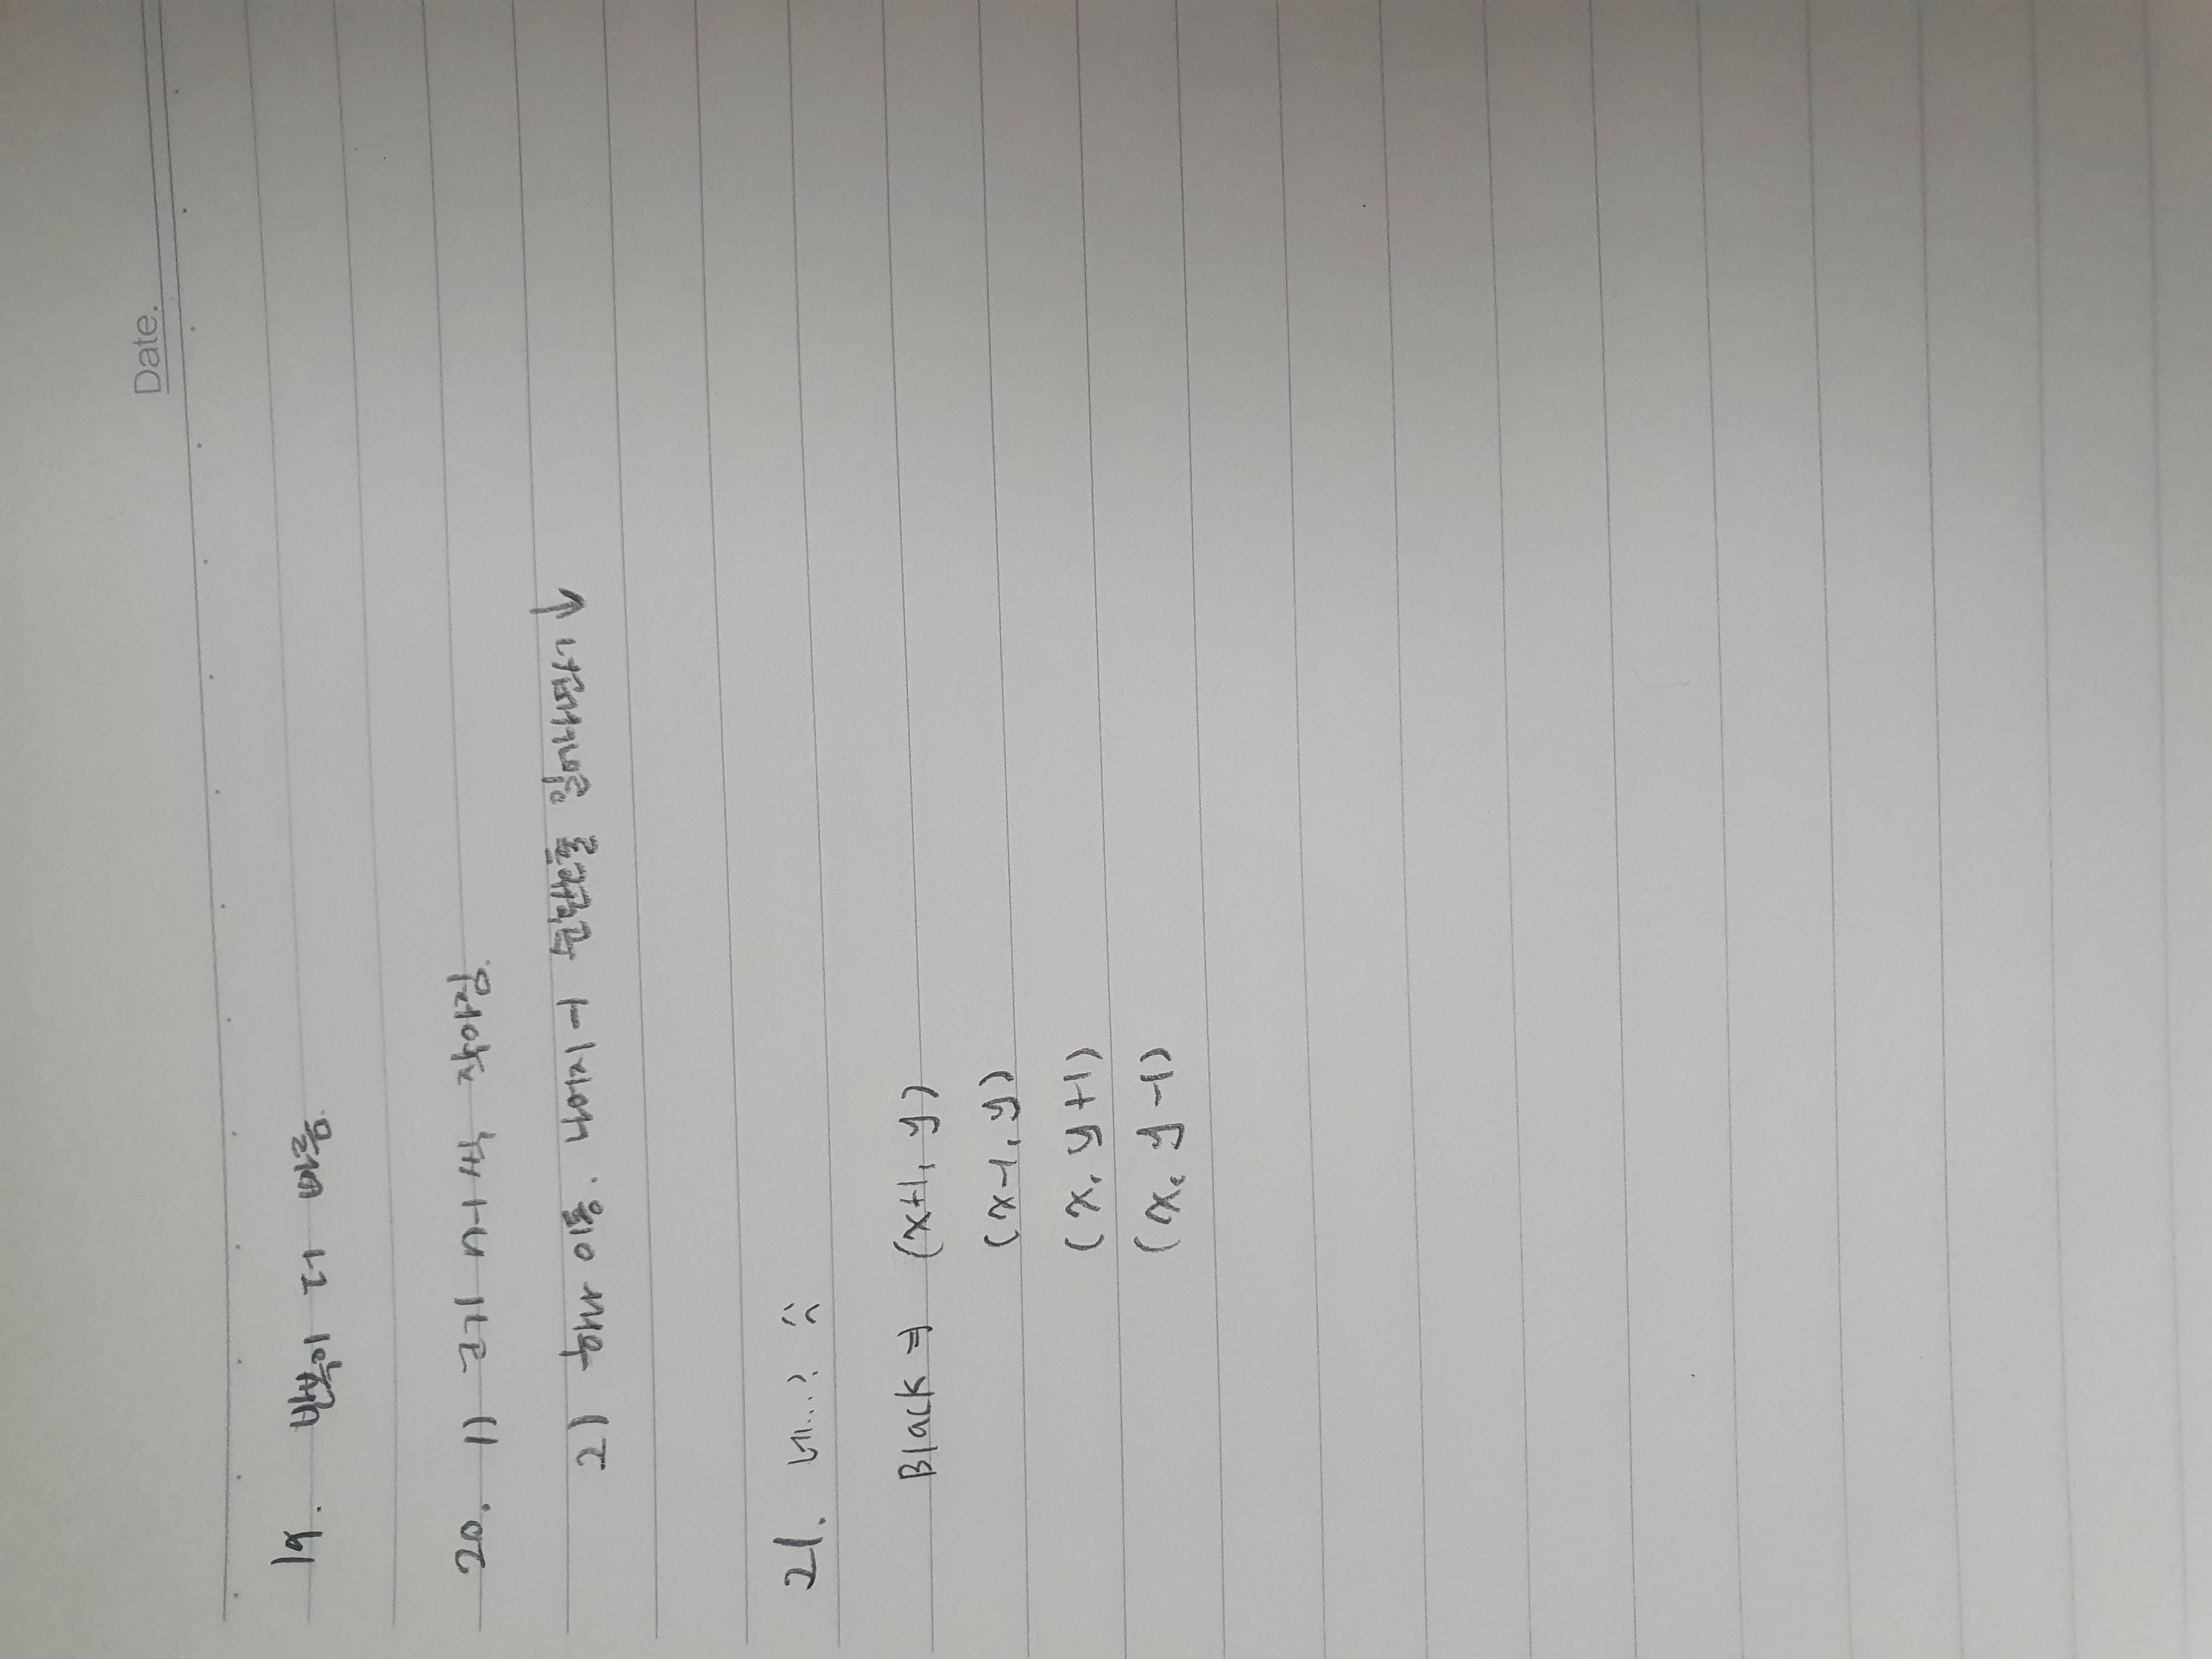 Date.
19. 반복이 더 빠름.
20. 1) 크기 n-1씩 작아짐.
2) 하나 이동. 나머지 -1 순환호출 일어나면서 ↓
21. 네...? ^^
Black ⇒ (x+1, y)
(x-1, y)
(x, y+1)
(x, y-1)